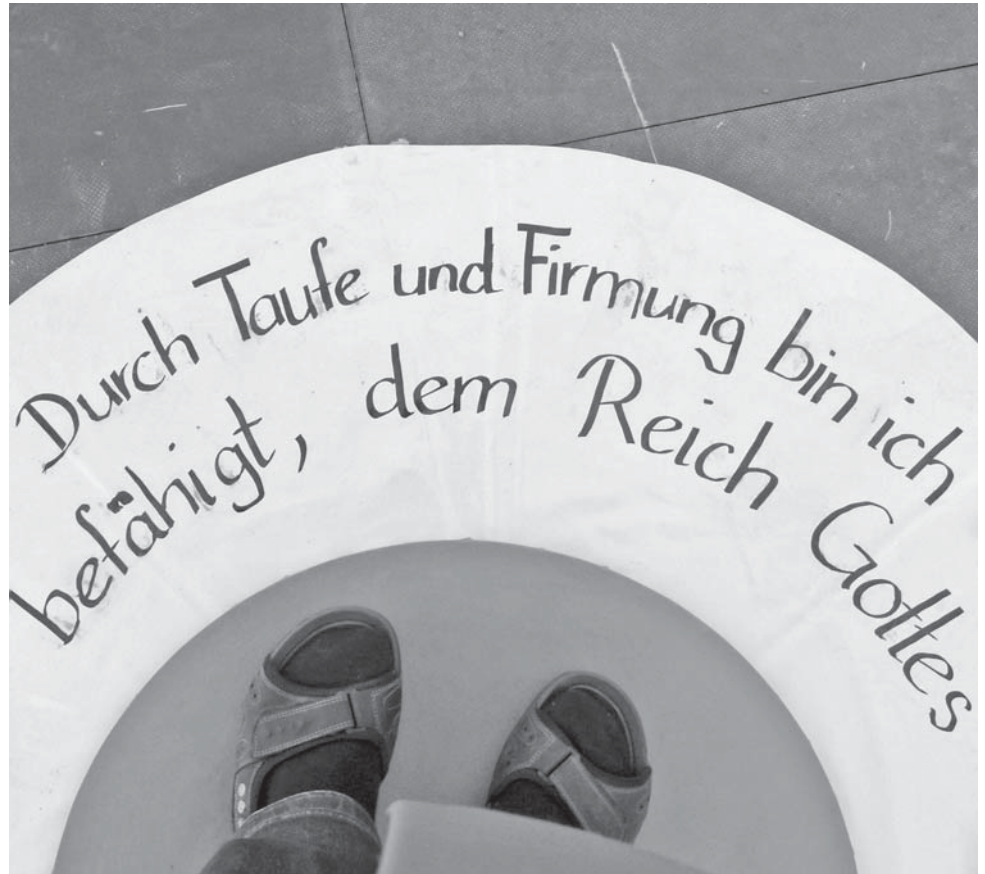 Durch Taufe und Firmung bin ich
befähigt, dem Reich Gottes